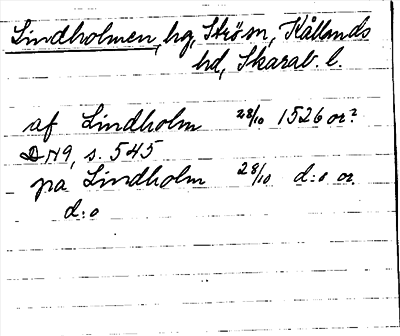 Lindholmen, hg, Strö sn, Kållands
hd, Skarab. l.
af Lindholm 28/10 1526 or?
DN 9, s. 545
pa Lindholm 28/10 d:o or.
d:o